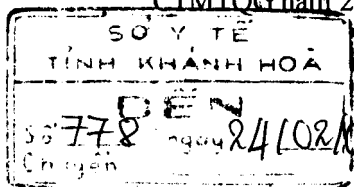 SỞ Y TẾ
TỈNH KHÁNH HOÀ
ĐẾN
Số 778 ngày 24/02/
Chuyển